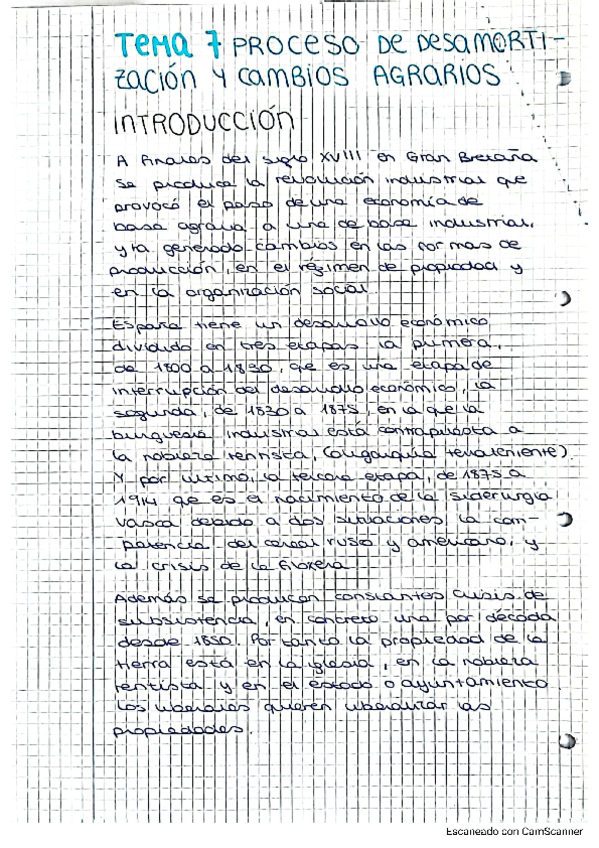 TEMA 7 PROCESO DE DESAMORTI-
ZACIÓN Y CAMBIOS AGRARIOS
INTRODUCCIÓN
A finales del siglo XVIII en Gran Bretaña
se produce la revolución industrial que
provocó el paso de una economía de
base agraria a una de base industrial,
y ha generado cambios en las formas de
producción, en el régimen de propiedad y
en la organización social
España tiene un desarrollo económico
dividido en tres etapas la primera,
de 1800 a 1830, que es una etapa de
interrupción del desarrollo económico, la
segunda, de 1830 a 1875, en la que la
burguesía industrial está contrapuesta a
la nobleza rentista, (oligarquía terrateniente).
Y por último, la tercera etapa, de 1875 a
1914 que es el nacimiento de la siderurgia
vasca debido a dos situaciones, la com-
petencia del cereal ruso y americano, y
la crisis de la filoxera
Además se producen constantes crisis de
subsistencia, en concreto una por década
desde 1850. Por tanto la propiedad de la
tierra está en la iglesia, en la nobleza
rentista y en el estado o ayuntamiento.
Los liberales quieren liberalizar las
propiedades.
Escaneado con CamScanner